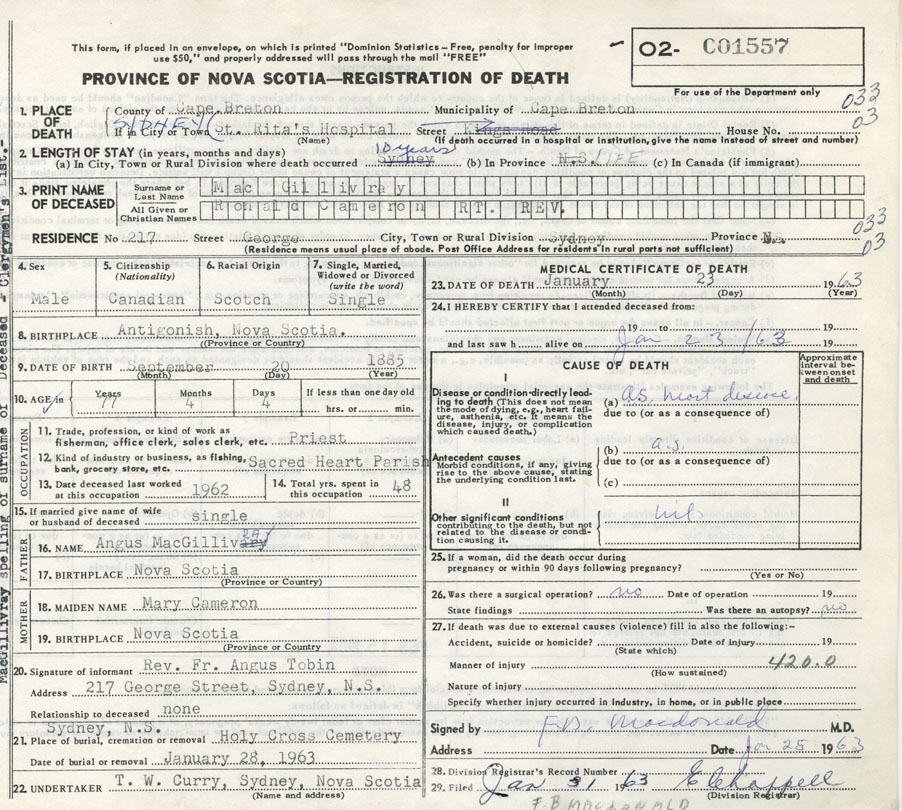 This form, if placed in an envelope, on which is printed "Dominion Statistics – Free, penalty for improper
use $50," and properly addressed will pass through the mail "FREE"
PROVINCE OF NOVA SCOTIA—REGISTRATION OF DEATH
O2- C01557
For use of the Department only
033
03
1. PLACE OF DEATH
County of Cape Breton Municipality of Cape Breton
SYDNEY
If in City or Town (St. Rita's Hospital Street Kings Road House No.
(Name) (If death occurred in a hospital or institution, give the name instead of street and number)
2. LENGTH OF STAY (in years, months and days) 10 years
(a) In City, Town or Rural Division where death occurred Sydney (b) In Province N.S. LIFE (c) In Canada (if immigrant)
3. PRINT NAME OF DECEASED
Surname or Last Name Mac Gillivray
All Given or Christian Names Ronald Cameron RT. REV.
033
03
RESIDENCE No 217 Street George City, Town or Rural Division Sydney Province N.S.
(Residence means usual place of abode. Post Office Address for residents in rural parts not sufficient)
4. Sex
Male
5. Citizenship (Nationality)
Canadian
6. Racial Origin
Scotch
7. Single, Married, Widowed or Divorced (write the word)
Single
8. BIRTHPLACE Antigonish, Nova Scotia.
(Province or Country)
9. DATE OF BIRTH September 20 1885
(Month) (Day) (Year)
10. AGE in Years 77 Months 4 Days 4 If less than one day old
hrs. or min.
OCCUPATION
11. Trade, profession, or kind of work as
fisherman, office clerk, sales clerk, etc. Priest
12. Kind of industry or business, as fishing,
bank, grocery store, etc. Sacred Heart Parish
13. Date deceased last worked
at this occupation 1962
14. Total yrs. spent in
this occupation 48
15. If married give name of wife
or husband of deceased single
FATHER
16. NAME Angus MacGillivary ray
17. BIRTHPLACE Nova Scotia
(Province or Country)
MOTHER
18. MAIDEN NAME Mary Cameron
19. BIRTHPLACE Nova Scotia
(Province or Country
20. Signature of informant Rev. Fr. Angus Tobin
Address 217 George Street, Sydney, N.S.
Relationship to deceased none
Sydney, N.S.
21. Place of burial, cremation or removal Holy Cross Cemetery
Date of burial or removal January 28, 1963
22. UNDERTAKER T. W. Curry, Sydney, Nova Scotia
(Name and address)
MEDICAL CERTIFICATE OF DEATH
23. DATE OF DEATH January 23 1963
(Month) (Day) (Year)
24. I HEREBY CERTIFY that I attended deceased from:
19 to 19
and last saw h alive on Jan 23/63 19
CAUSE OF DEATH
Approximate interval between onset and death
I
Disease or condition directly leading to death (This does not mean the mode of dying, e.g., heart failure, asthenia, etc. It means the disease, injury, or complication which caused death.)
(a) a.s. heart disease
due to (or as a consequence of)
Antecedent causes
Morbid conditions, if any, giving rise to the above cause, stating the underlying condition last.
(b) a.s.
due to (or as a consequence of)
(c)
II
Other significant conditions
contributing to the death, but not related to the disease or condition causing it.
nil
25. If a woman, did the death occur during
pregnancy or within 90 days following pregnancy?
(Yes or No)
26. Was there a surgical operation? no Date of operation 19
State findings Was there an autopsy? no
27. If death was due to external causes (violence) fill in also the following:–
Accident, suicide or homicide? Date of injury 19
(State which)
Manner of injury 420.0
(How sustained)
Nature of injury
Specify whether injury occurred in Industry, in home, or in public place
Signed by F.B. Macdonald M.D.
Address Date Jan 25 1963
28. Division Registrar's Record Number
29. Filed Jan 31 1963 E Chappell
(Division Registrar)
F.B MACDONALD
MacGillivray spelling of surname of Deceased - Clergymen's List.-